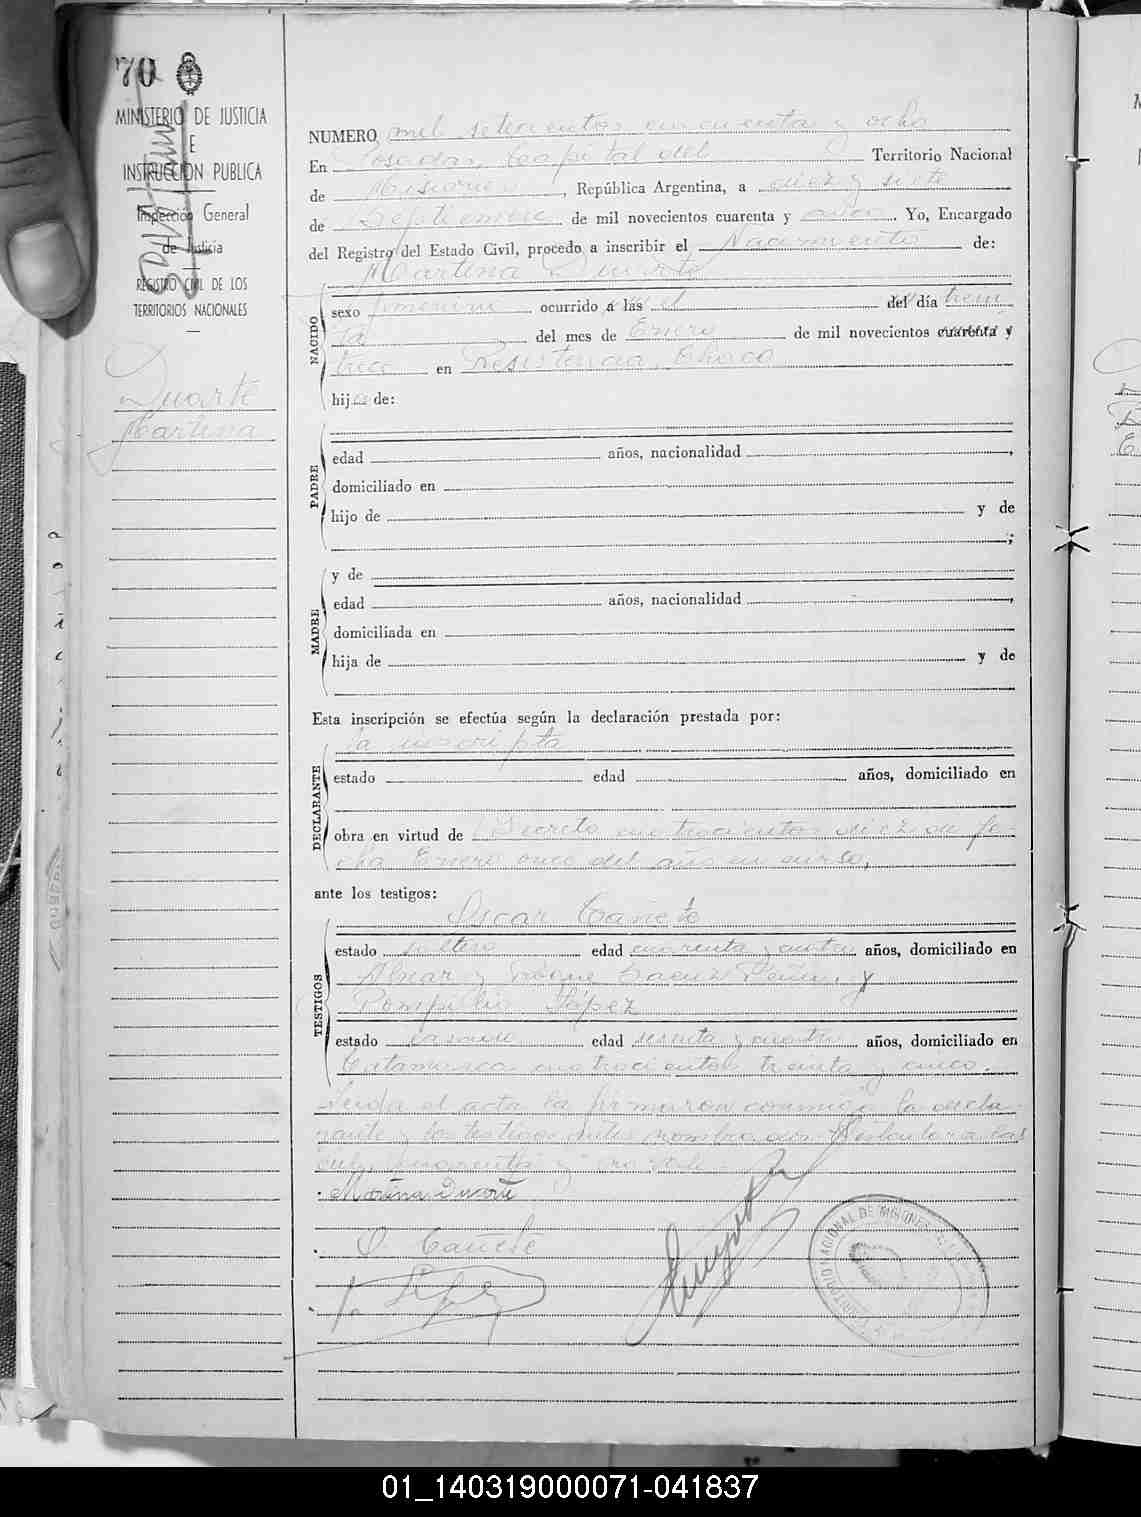 70
MINISTERIO DE JUSTICIA
E
INSTRUCCIÓN PUBLICA
Inspección General
de Justicia
REGISTRO CIVIL DE LOS
TERRITORIOS NACIONALES
Duarte
Martina
NUMERO mil setecientos cincuenta y ocho
En Posadas, Capital del Territorio Nacional
de Misiones, República Argentina, a diez y siete
de Septiembre de mil novecientos cuarenta y ocho. Yo, Encargado
del Registro del Estado Civil, procedo a inscribir el Nacimiento de:
Martina Duarte
NACIDO
sexo femenino ocurrido a las el del día trein
ta del mes de Enero de mil novecientos cuarenta y
trece en Resistencia, Chaco
hija de:
PADRE
edad años, nacionalidad ,
domiciliado en
hijo de y de
;
MADRE
y de
edad años, nacionalidad ,
domiciliada en
hija de y de
Esta inscripción se efectúa según la declaración prestada por:
DECLARANTE
la inscripta
estado edad años, domiciliado en
obra en virtud de Decreto cuatrocientos diez de fe
cha Enero once del año en curso,
ante los testigos:
TESTIGOS
Oscar Cañete
estado soltero edad cuarenta y cuatro años, domiciliado en
y Roque Saenz Peña, y
Pompilio López
estado casado edad sesenta y cuatro años, domiciliado en
Catamarca cuatrocientos treinta y cinco.
Leida el acta la firmaron conmigo la decla
rante y los testigos antes nombrados.
cuarenta y
Martina Duarte
O Cañete
P. López
TERRITORIO NACIONAL DE MISIONES
01_140319000071-041837